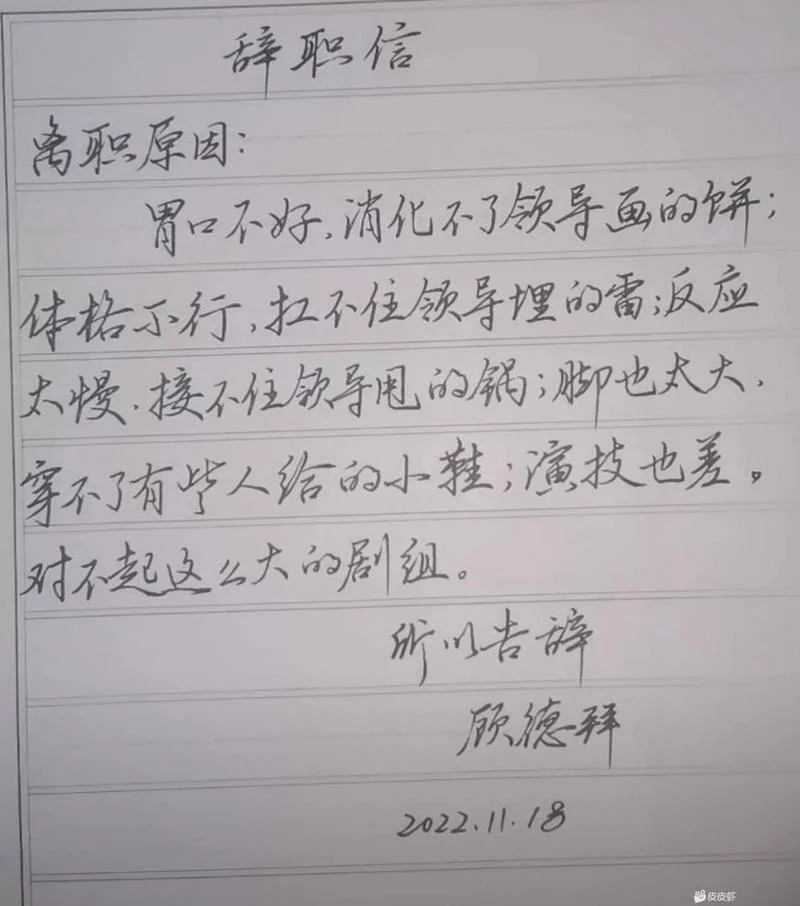 辞职信
离职原因:
胃口不好,消化不了领导画的饼;
体格不行,扛不住领导埋的雷;反应
太慢,接不住领导甩的锅;脚也太大,
穿不了有些人给的小鞋;演技也差。
对不起这么大的剧组。
所以告辞
顾德拜
2022.11.18
皮皮虾